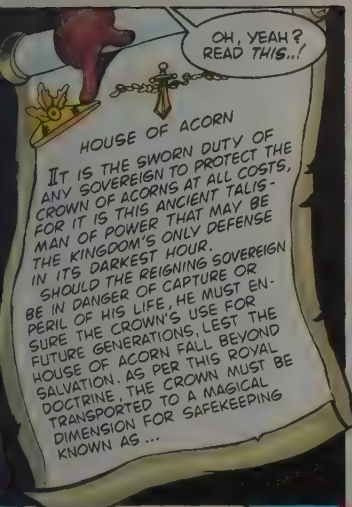 OH, YEAH?
READ THIS..!
HOUSE OF ACORN
IT IS THE SWORN DUTY OF
ANY SOVEREIGN TO PROTECT THE
CROWN OF ACORNS AT ALL COSTS,
FOR IT IS THIS ANCIENT TALIS-
MAN OF POWER THAT MAY BE
THE KINGDOM'S ONLY DEFENSE
IN ITS DARKEST HOUR.
SHOULD THE REIGNING SOVEREIGN
BE IN DANGER OF CAPTURE OR
PERIL OF HIS LIFE, HE MUST EN-
SURE THE CROWN'S USE FOR
FUTURE GENERATIONS, LEST THE
HOUSE OF ACORN FALL BEYOND
SALVATION. AS PER THIS ROYAL
DOCTRINE, THE CROWN MUST BE
TRANSPORTED TO A MAGICAL
DIMENSION FOR SAFEKEEPING
KNOWN AS ...